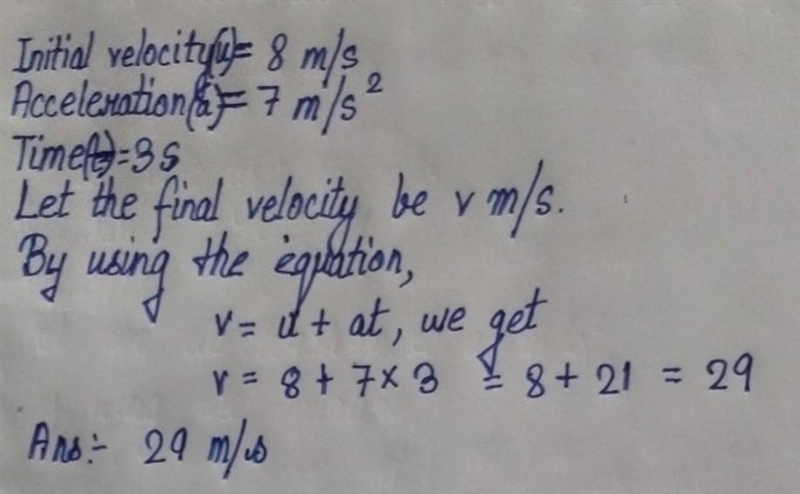 Initial velocity(u)= 8 m/s
Acceleration(a)= 7 m/s²
Time(t)=3s
Let the final velocity be v m/s.
By using the equation,
v= u + at, we get
v = 8 + 7×3 = 8 + 21 = 29
Ans:- 29 m/s